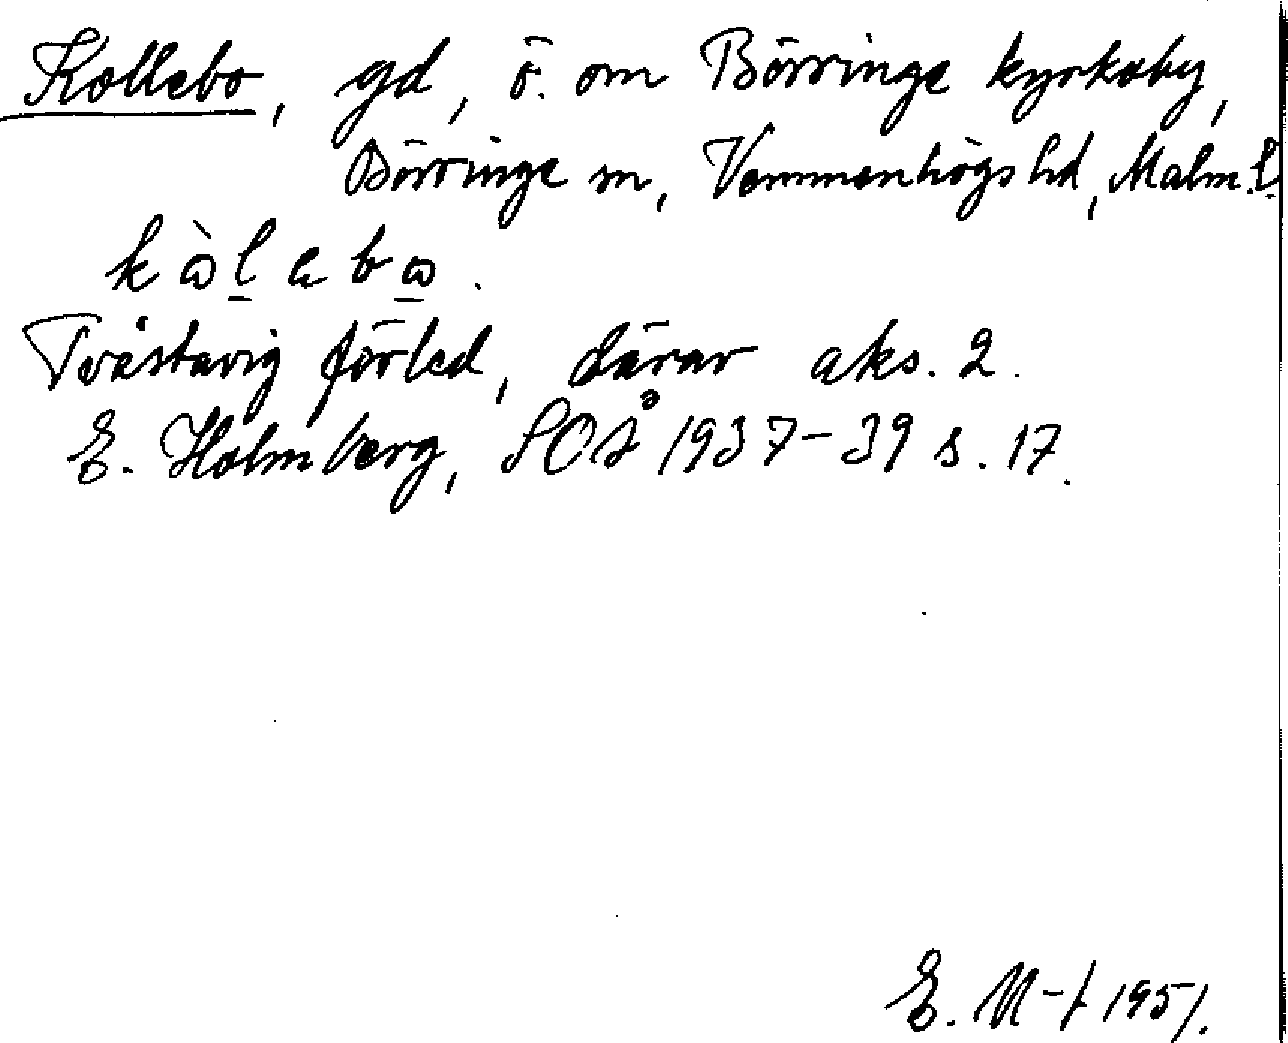 Kollebo, gd, ö. om Börringe kyrkoby,
Börringe sn, Vemmenhögs hd, Malm. l.
Tvåstavig förled, därav aks. 2.
E. Holmberg, SOÅ 1937-39 s. 17.
E. M-t 1951.